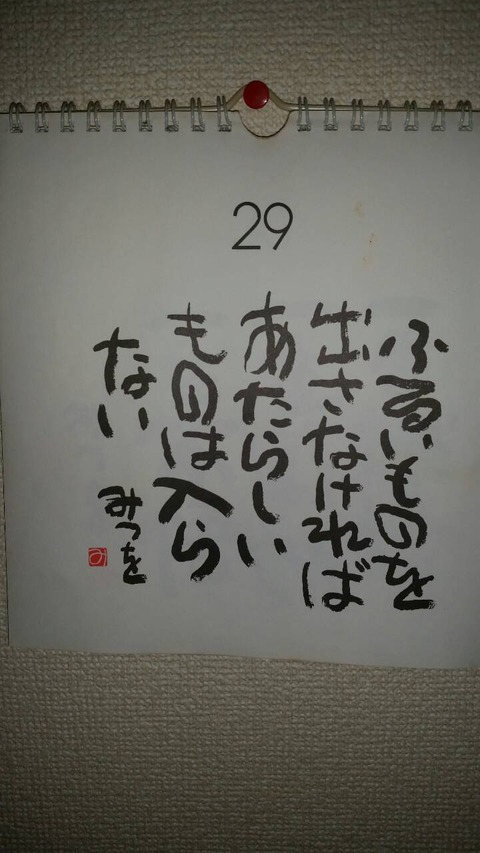 29
ふるいものを
出さなければ
あたらしい
ものは入ら
ない
みつを
み